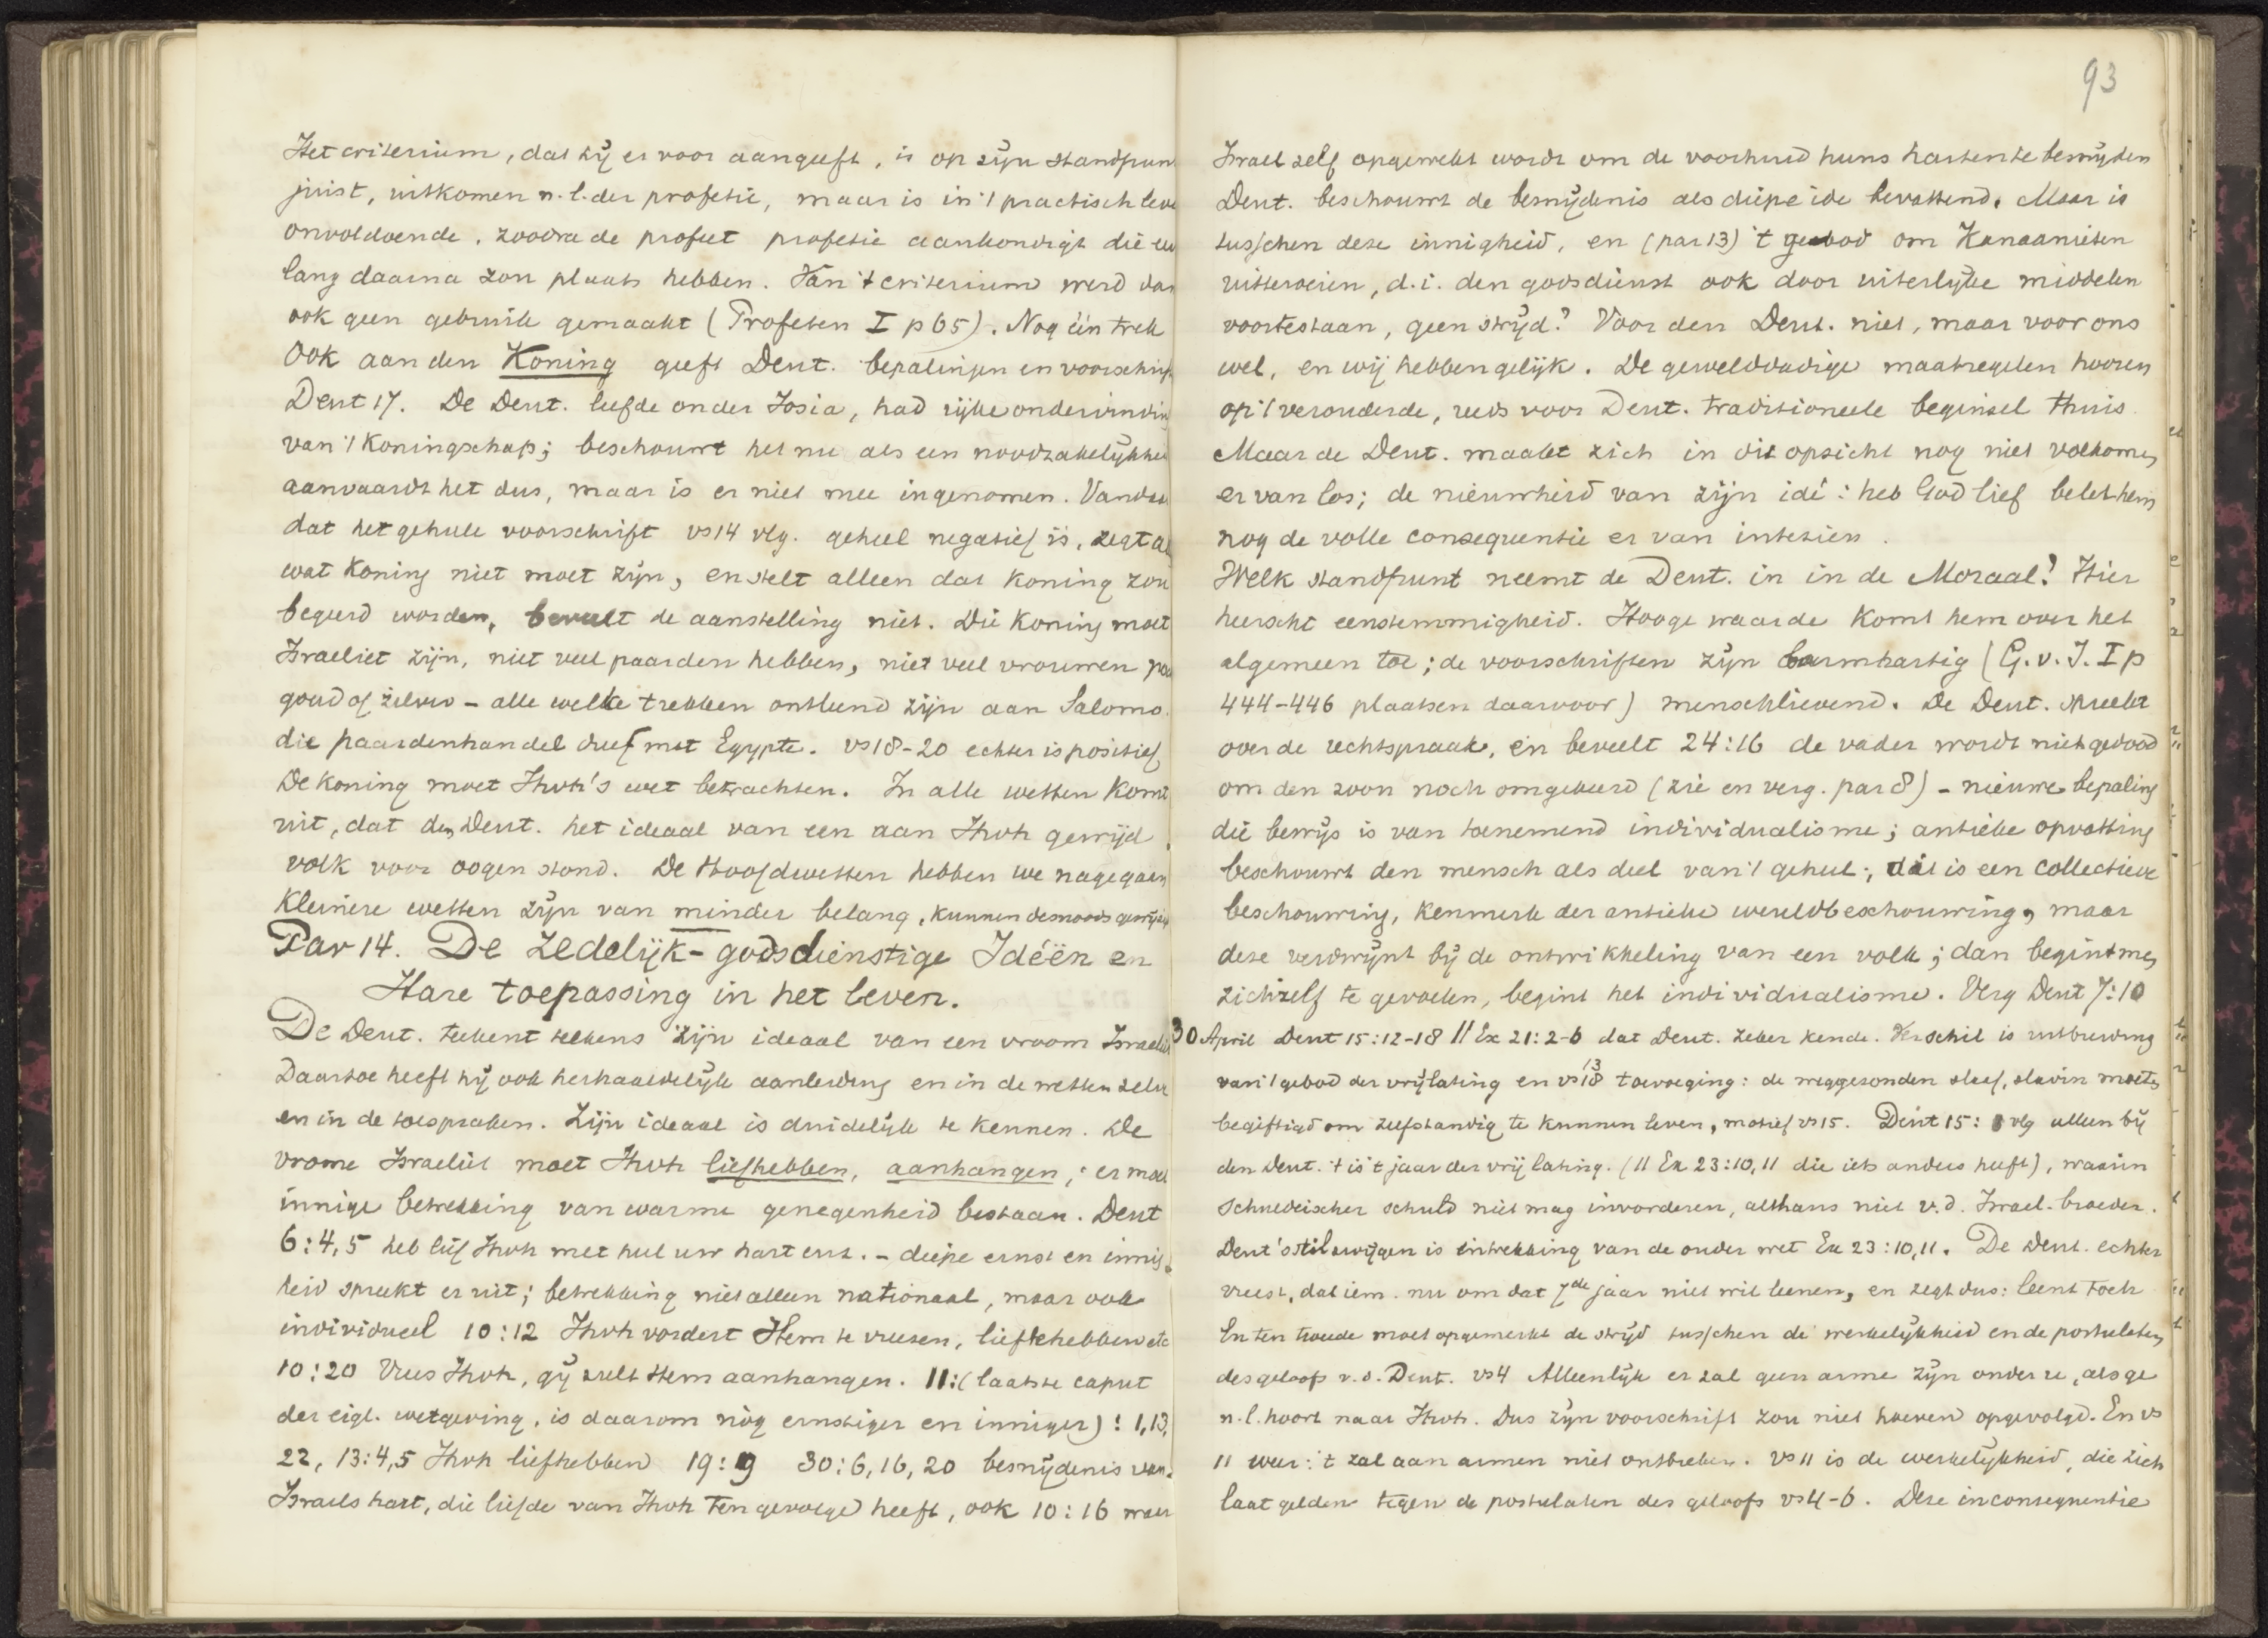 Het criterium, dat hij er voor aangeeft, is op zijn standpun
juist, uitkomen n.l. der profetie, maar is in 't practisch leve
onvoldoende, zoodra de profeet profetie aankondigt die eeu
lang daarna zou plaats hebben. Van 't criterium werd dan
ook geen gebruik gemaakt (Profeten I p 65). Nog één trek
Ook aan den Koning geeft Deut. bepalingen en voorschrif
Deut 17. De Deut. leefde onder Josia, had rijke ondervindin
van 't Koningschap; beschouwt het nu als een noodzakelijkhei
aanvaardt het dus, maar is er niet mee ingenomen. Vandaa
dat het geheele voorschrift vs 14 vlg. geheel negatief is, zegt al
wat Koning niet moet zijn, en stelt alleen dat Koning zou
begeerd worden, beveelt de aanstelling niet. Die Koning moet
Israeliet zijn, niet veel paarden hebben, niet veel vrouwen
goud of zilver – alle welke trekken ontleend zijn aan Salomo.
die paardenhandel dreef met Egypte. vs 18-20 echter is positief
De Koning moet Jhvh's wet betrachten. In alle wetten Komt
uit, dat den Deut. het ideaal van een aan Jhvh gewijd
volk voor oogen stond. De Hoofdwetten hebben we nagegaan
Kleinere wetten zijn van minder belang, kunnen desnoods
Par 14. De zedelijk-godsdienstige Ideëen en
Hare toepassing in het leven.
De Deut. teekent telkens zijn ideaal van een vroom Israeliet
Daartoe heeft hij ook herhaaldelijk aanleiding en in de wetten zelve
en in de toespraken. Zijn ideaal is duidelijk te kennen. De
vrome Israeliet moet Jhvh liefhebben, aanhangen; er moet
innige betrekking van warme genegenheid bestaan. Deut
6:4,5 heb lief Jhvh met heel uw hart enz. – diepe ernst en innig
heid spreekt er uit; betrekking niet alleen nationaal, maar ook
individueel 10:12 Jhvh vordert Hem te vreezen, lief te hebben etc
10:20 Vrees Jhvh, gij zult Hem aanhangen. 11:(laatste caput
der eigl. wetgeving, is daarom nòg ernstiger en inniger)! 1,13,
22, 13:4,5 Jhvh liefhebben 19:9 30:6,16,20 besnijdenis van
Israels hart, die liefde van Jhvh ten gevolge heeft, ook 10:16 waar
93
Israel zelf opgewekt wordt om de voorhuid huns harten te besnijden
Deut. beschouwt de besnijdenis als diepe idee bevattend. Maar is
tusschen deze innigheid, en (par 13) 't gebod om Kanaanieten
uitteroeien, d.i. den godsdienst ook door uiterlijke middelen
voortestaan, geen strijd? Voor den Deut. niet, maar voor ons
wel, en wij hebben gelijk. De gewelddadige maatregelen hooren
op 't verouderde, reeds voor Deut. traditioneele beginsel thuis.
Maar de Deut. maakt zich in dit opzicht nog niet volkomen
er van los; de nieuwheid van zijn idé: heb God lief belet hem
nog de volle consequentie er van intezien.
Welk standpunt neemt de Deut. in in de Moraal? Hier
heerscht eenstemmigheid. Hooge waarde Komt hem over het
algemeen toe; de voorschriften zijn barmhartig (G.v.I. I p
444-446 plaatsen daarvoor) menschlievend. De Deut. spreekt
over de rechtspraak, en beveelt 24:16 de vader wordt niet gedood
om den zoon noch omgekeerd (zie en verg. par 8) – nieuwe bepaling
die bewijs is van toenemend individualisme; antieke opvatting
beschouwt den mensch als deel van 't geheel; dat is een collectieve
beschouwing, kenmerk der antieke wereldbeschouwing, maar
deze verdwijnt bij de ontwikkeling van een volk; dan begint men
zichzelf te gevoelen, begint het individualisme. Verg Deut 7:10
30 April Deut 15:12-18 // Ex 21:2-6 dat Deut. zeker kende. Verschil is uitbreiding
van 't gebod der vrijlating en vs 13 18 toevoeging: de weggezonden slaaf, slavin moeten
begiftigd om zelfstandig te kunnen leven, motief vs 15. Deut 15: vlg alleen bij
den Deut. 't is 't jaar der vrijlating. (// Ex 23:10,11 die iets anders heeft), waarin
schuldeischer schuld niet mag invorderen, althans niet v.d. Israel. broeder.
Deut's stilzwijgen is intrekking van de ouder wet Ex 23:10,11. De Deut. echter
vreest, dat iem. nu om dat 7de jaar niet wil leenen, en zegt dus: leent toch
En ten tweede moet opgemerkt de strijd tusschen de werkelijkheid en de postulaten
des geloofs v.d. Deut. vs 4 Alleenlijk er zal geen arme zijn onder u, als ge
n.l. hoort naar Jhvh. Dus zijn voorschrift zou niet hoeven opgevolgd. En vs
11 weer: 't zal aan armen niet ontbreken. vs 11 is de werkelijkheid, die zich
laat gelden tegen de postulaten des geloofs vs 4-6. Deze inconsequentie